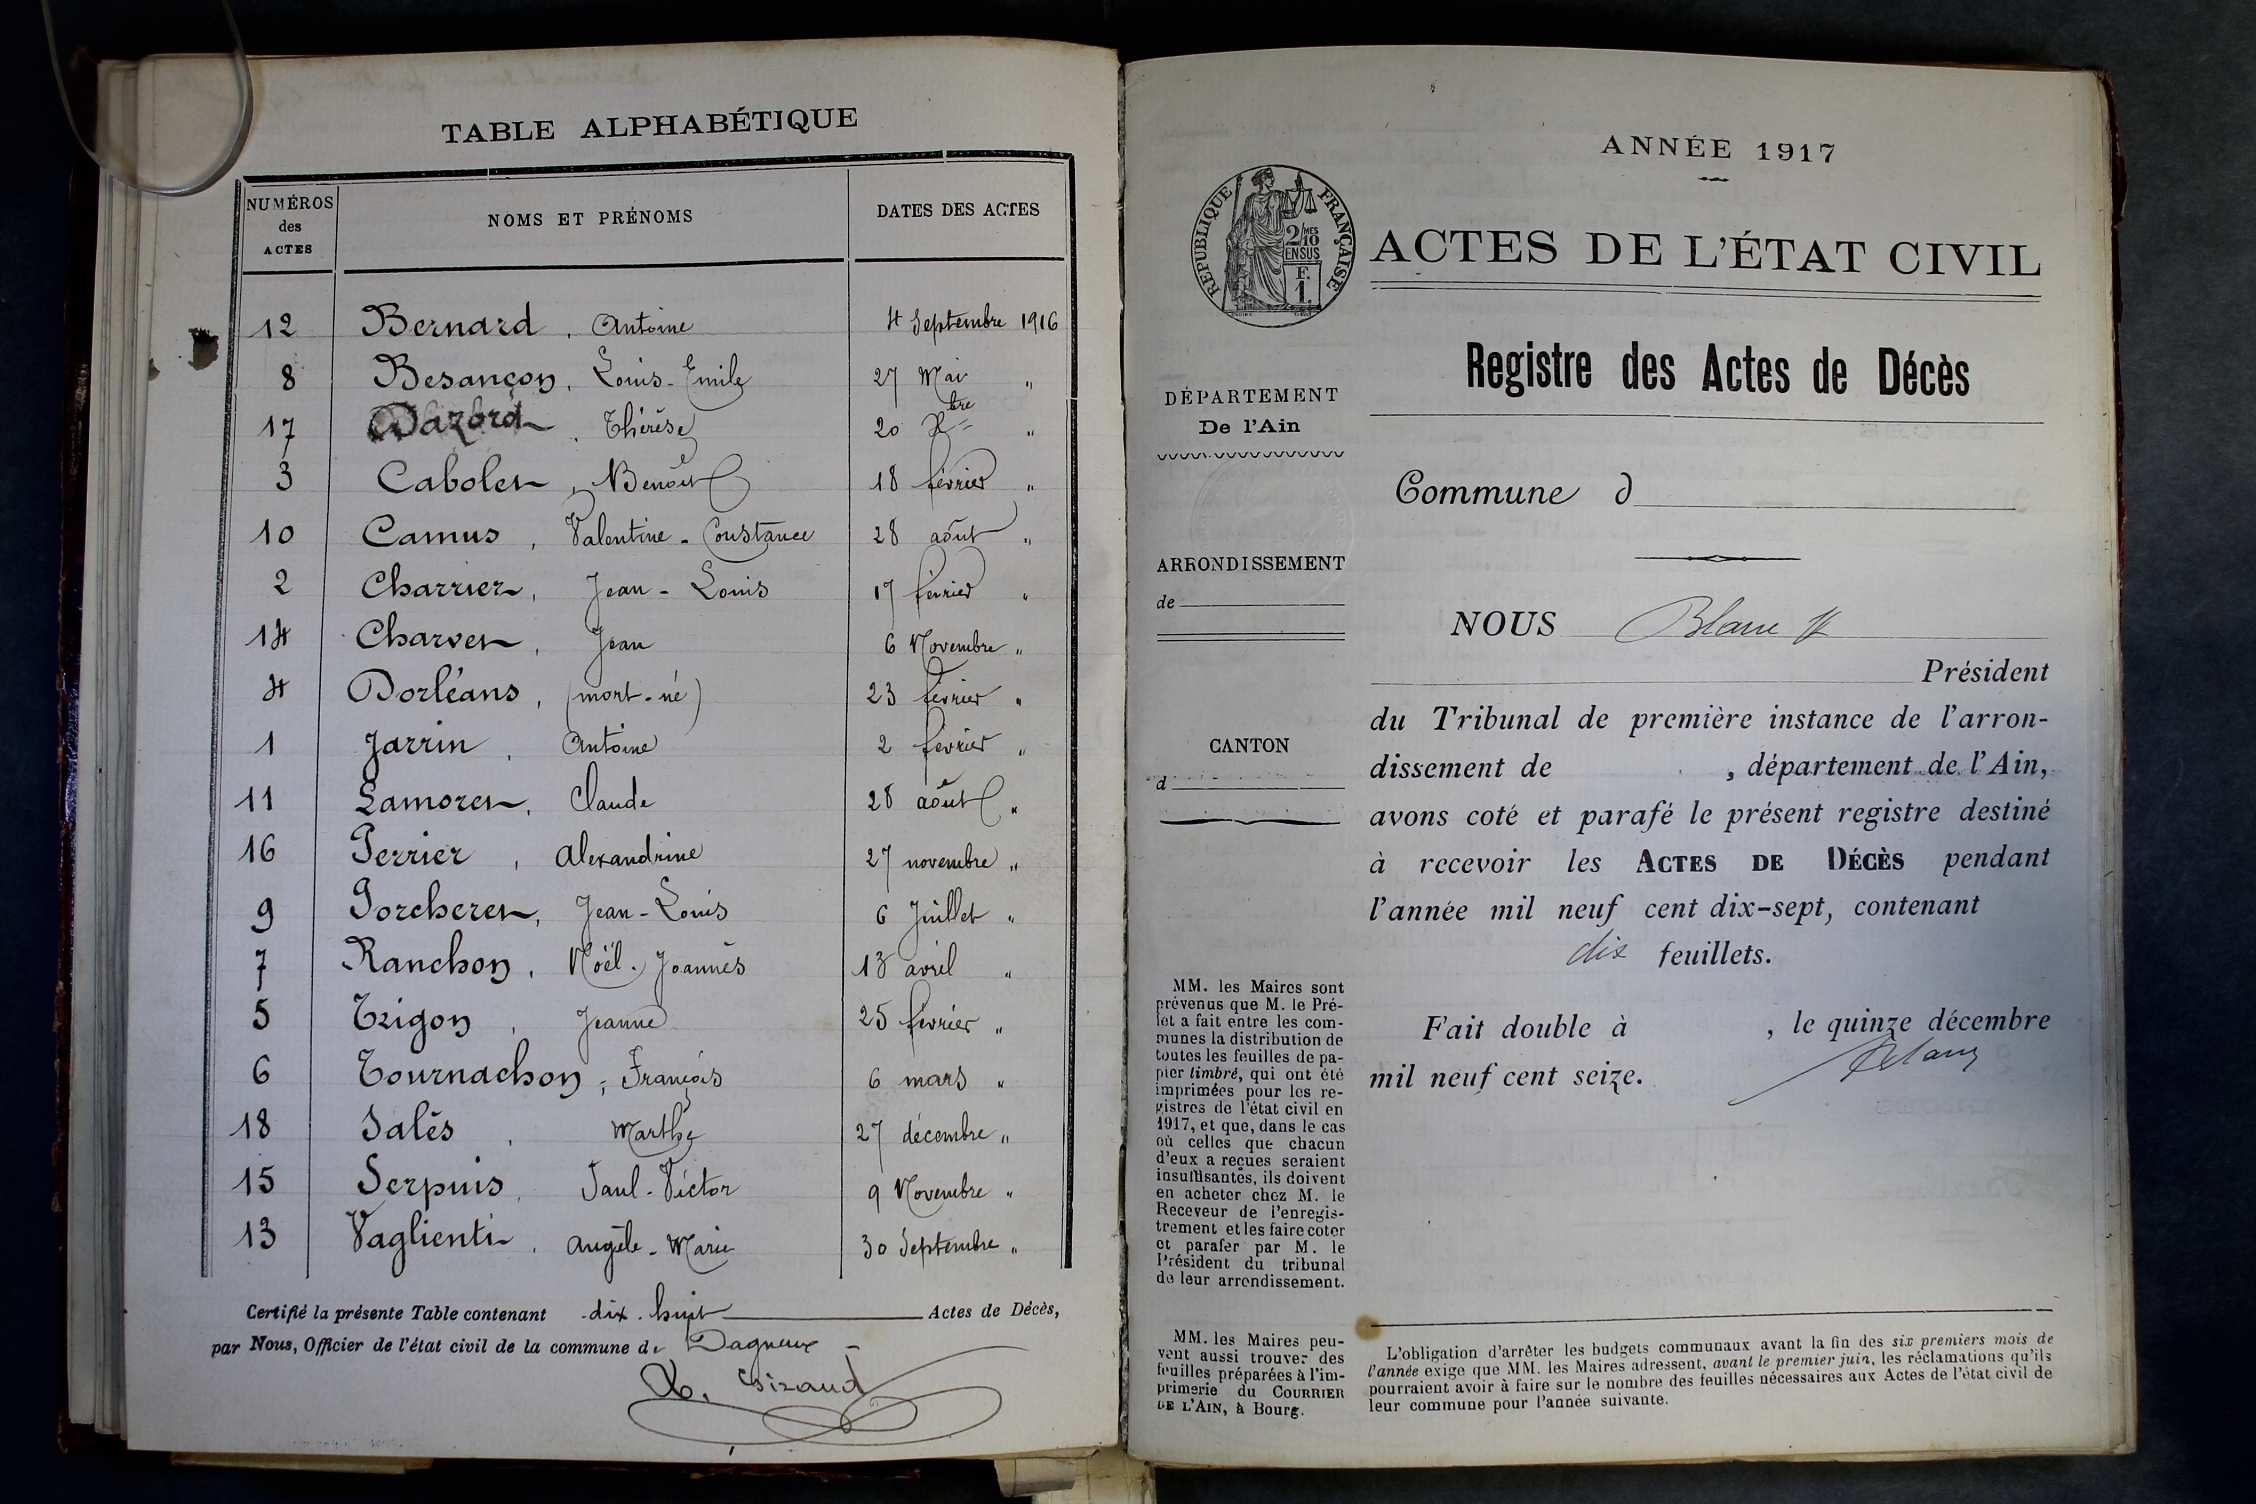 TABLE ALPHABÉTIQUE
NUMÉROS des ACTES
NOMS ET PRÉNOMS
DATES DES ACTES
12 Bernard, Antoine 4 Septembre 1916
8 Besançon, Louis-Emile 27 Mai "
17 Dazord, Thérèse 20 Xbre "
3 Cabolet, Benoît 18 février "
10 Camus, Valentine-Constance 28 août "
2 Charrier, Jean-Louis 17 février "
14 Charvet, Jean 6 Novembre "
4 Dorléans, (mort-né) 23 février "
1 Jarrin, Antoine 2 février "
11 Lamoret, Claude 28 août "
16 Perrier, Alexandrine 27 novembre "
9 Porcheret, Jean-Louis 6 Juillet "
7 Ranchon, Noël-Joannès 13 avril "
5 Trigon, Jeanne 25 février "
6 Tournachon, François 6 mars "
18 Salès, Marthe 27 décembre "
15 Serpuis, Paul-Victor 9 Novembre "
13 Vaglienti, Angèle-Marie 30 Septembre "
Certifié la présente Table contenant dix-huit Actes de Décès,
par Nous, Officier de l'état civil de la commune de Dagneux
ANNÉE 1917
RÉPUBLIQUE FRANÇAISE
2/10MES
EN SUS
F.
1.
ACTES DE L'ÉTAT CIVIL
Registre des Actes de Décès
DÉPARTEMENT
De l'Ain
Commune d
ARRONDISSEMENT
de
NOUS Blanc
Président
du Tribunal de première instance de l'arron-
CANTON
dissement de , département de l'Ain,
d
avons coté et parafé le présent registre destiné
à recevoir les ACTES DE DÉCÈS pendant
l'année mil neuf cent dix-sept, contenant
dix feuillets.
Fait double à , le quinze décembre
mil neuf cent seize.
MM. les Maires sont
prévenus que M. le Pré-
fet a fait entre les com-
munes la distribution de
toutes les feuilles de pa-
pier timbré, qui ont été
imprimées pour les re-
gistres de l'état civil en
1917, et que, dans le cas
où celles que chacun
d'eux a reçues seraient
insuffisantes, ils doivent
en acheter chez M. le
Receveur de l'enregis-
trement et les faire coter
et parafer par M. le
Président du tribunal
de leur arrondissement.
MM. les Maires peu-
vent aussi trouver des
feuilles préparées à l'im-
primerie du COURRIER
DE L'AIN, à Bourg.
L'obligation d'arrêter les budgets communaux avant la fin des six premiers mois de
l'année exige que MM. les Maires adressent, avant le premier juin, les réclamations qu'ils
pourraient avoir à faire sur le nombre des feuilles nécessaires aux Actes de l'état civil de
leur commune pour l'année suivante.